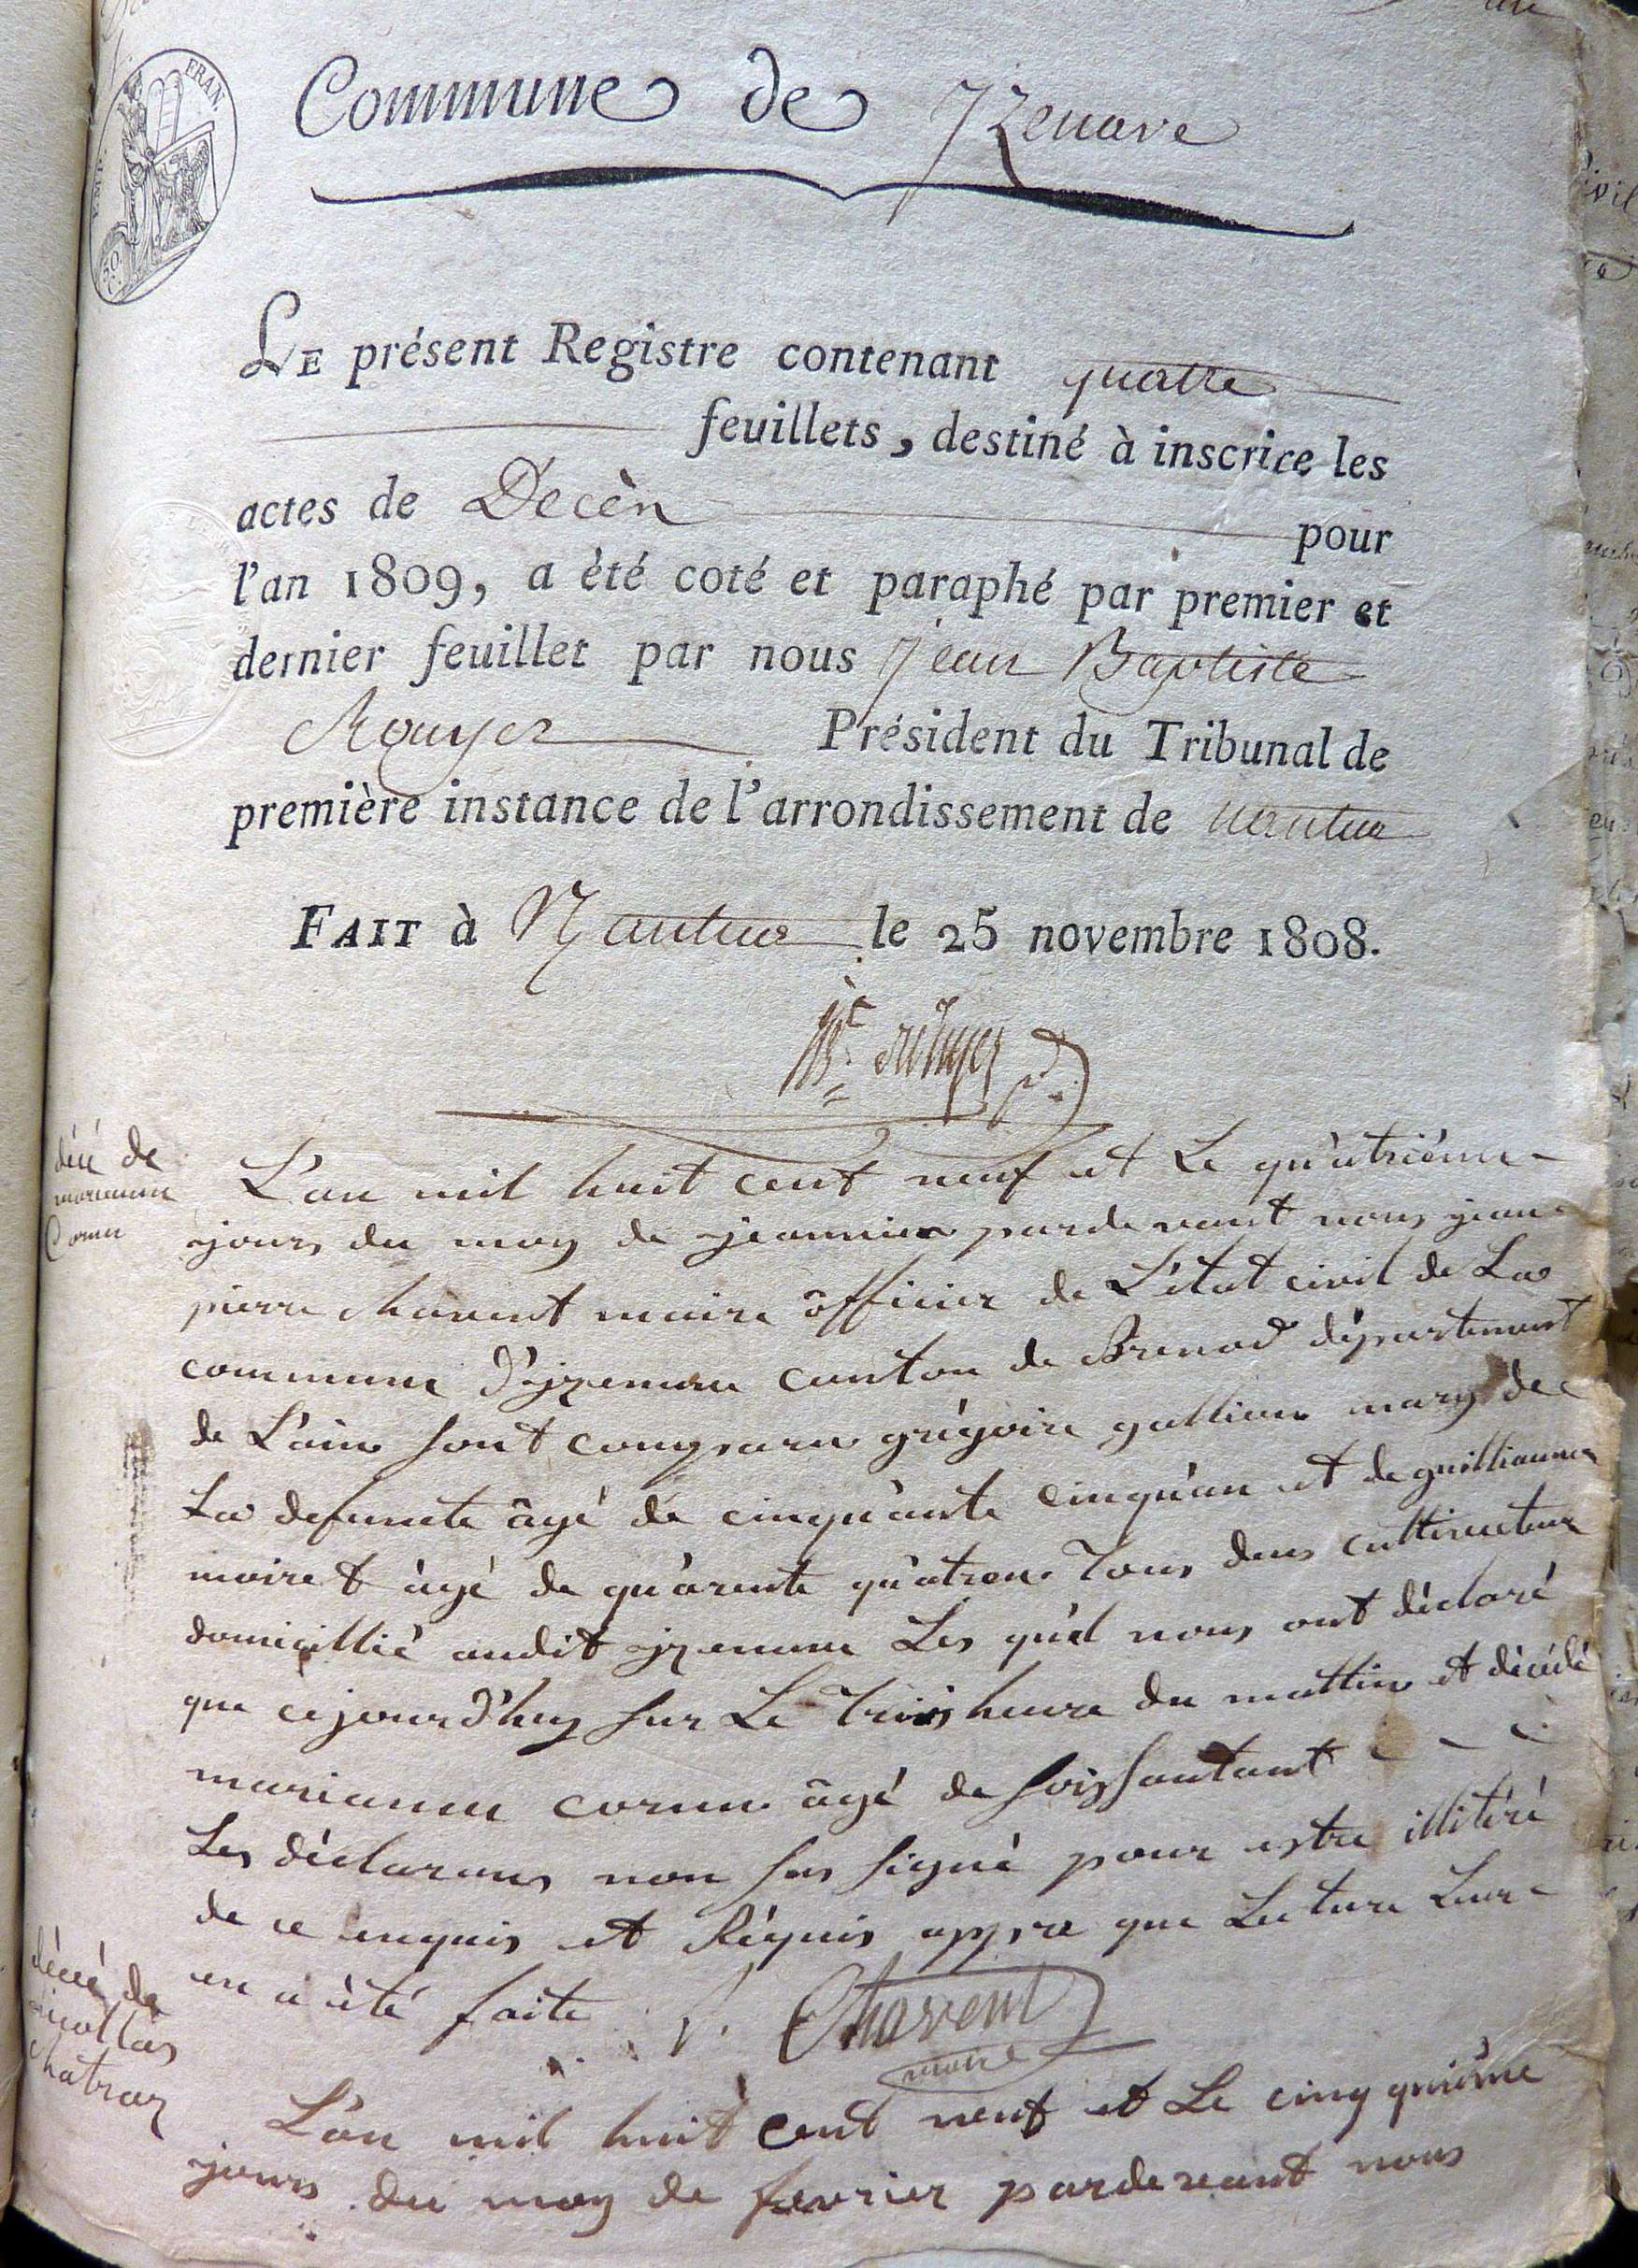 FRAN.
50
C.
Commune de Izenave
LE présent Registre contenant quatre
feuillets, destiné à inscrire les
actes de Décès pour
l'an 1809, a été coté et paraphé par premier et
dernier feuillet par nous Jean Baptiste
Rouyer Président du Tribunal de
première instance de l'arrondissement de nantua
FAIT à Nantua le 25 novembre 1808.
décé de
marianne
Cornu
L'an mil huit cent neuf et Le quàtriéme
jours du moy de jeanvier pardevant nous jean
pierre Charvent maire ôfficier de L'état civil de La
commune d'izenave canton de Brenod département
de L'ain sont comparu grégoire gallien mary de
La defunte âgé de cinquànte cinquàn et de guilliaume
moiret àgé de quàrante quàtrean Tous deus cultivateur
domicillié audit izenave Les quèl nous ont déclaré
que cejourd'huy sur Le Trois heure du mattin et décédé
marianne cornu âgé de soissantant
Les déclarans non sus signé pour estre illitéré
de ce enquis et Réquis appre que Lecture Leur
en a été faite P. Charvent
maire
décé de
nicollas
Chatron
L'an mil huit cent neuf et Le cinq quiéme
jours du moy de fevrier pardevant nous